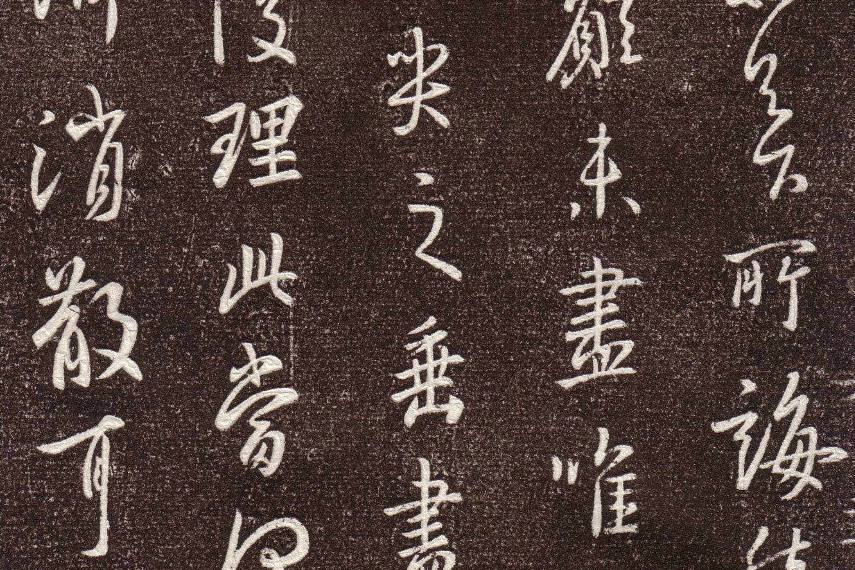 所誨
顧未盡唯
笑之垂盡
復理此當
消散耳